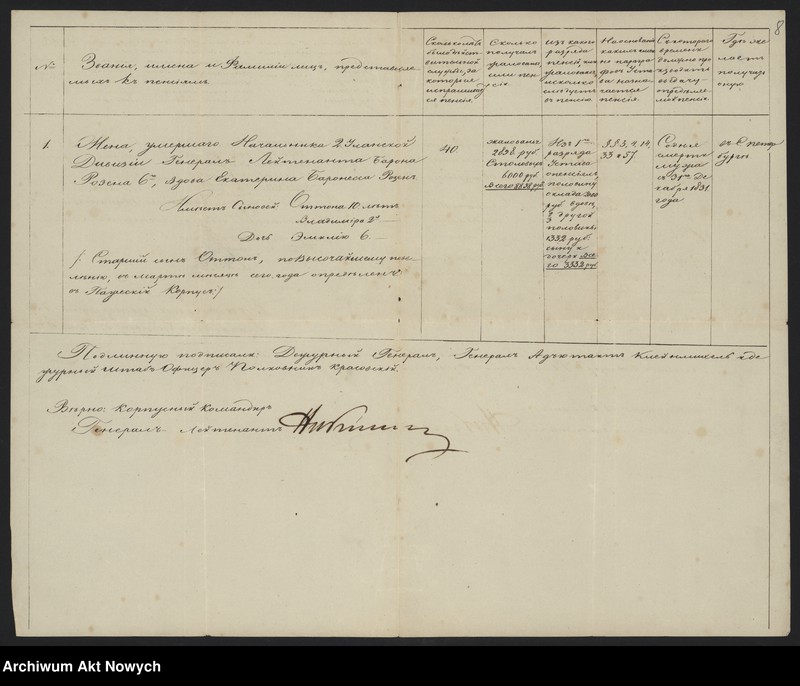 8
№
Званія, имена и Фамиліи лицъ, представляе-
мыхъ къ пенсіямъ.
Сколько лѣтъ
былъ въ дѣйст-
вительной
службѣ, за
которую
испрашивает-
ся пенсія.
Сколько
получалъ
жалованья
или пен-
сіи.
Изъ какого
разряда
пенсій, или
жалованья,
и сколько
слѣдуетъ
въ пенсію
На основаніи
какихъ имен-
но параграфовъ Уста-
ва назна-
чается
пенсія.
Съ котораго
времени
должно про-
изводить
выдачу
опредѣляе-
мой пенсіи.
Гдѣ же-
лаетъ
получать
оную
1.
Жена, умершаго Начальника 2 Уланской
Дивизіи Генералъ Лейтенанта Барона
Розена 6го, вдова Екатерина Баронесса Розенъ
Имѣетъ Сыновей: Оттона 10 лѣтъ
Владиміра 2
Дочь Эмилію 6
/: Старшій сынъ Оттонъ, по Высочайшему
въ Мартѣ мѣсяцѣ сего года опредѣленъ
въ Пажескій Корпусъ:/
40
жалованья
2838 руб.
Столовыхъ
6000 руб.
Всего 8838 руб.
Изъ 1го
разряда
Устава
о пенсіяхъ
половину
оклада
руб. вдовѣ,
другой
половины
1332 руб.
сыну и
дочери все-
го 3332 руб.
§§ 3, 4, 14,
33 и 57.
Со дня
смерти
мужа
съ 31го Де-
кабря 1831
года
въ С. Петер-
бургѣ
Подлинную подписали: Дежурный Генералъ, Генералъ Адъютантъ Клейнмихель и де-
журный Штабъ Офицеръ Полковникъ Красовскій.
Вѣрно: Корпусный Командиръ
Генералъ Лейтенантъ
Archiwum Akt Nowych